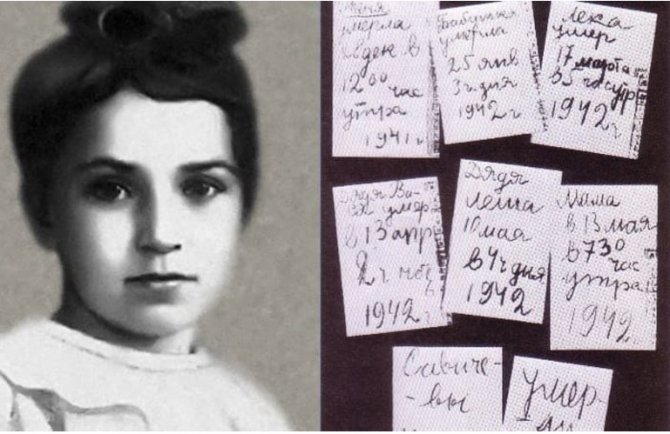 Женя
умерла
28 дек в
12 00 час
утра
1941 г
Бабушка
умерла
25 янв
3 ч дня
1942 г
Лека
умер
17 марта
в 5 час утр
1942 г
Дядя Ва-
ся умер
в 13 апр
2 ч
1942 г
Дядя
Леша
10 мая
в 4 ч дня
1942
Мама
в 13 мая
в 7 30
час
утра
1942
Савиче-
вы
Умер-
ли